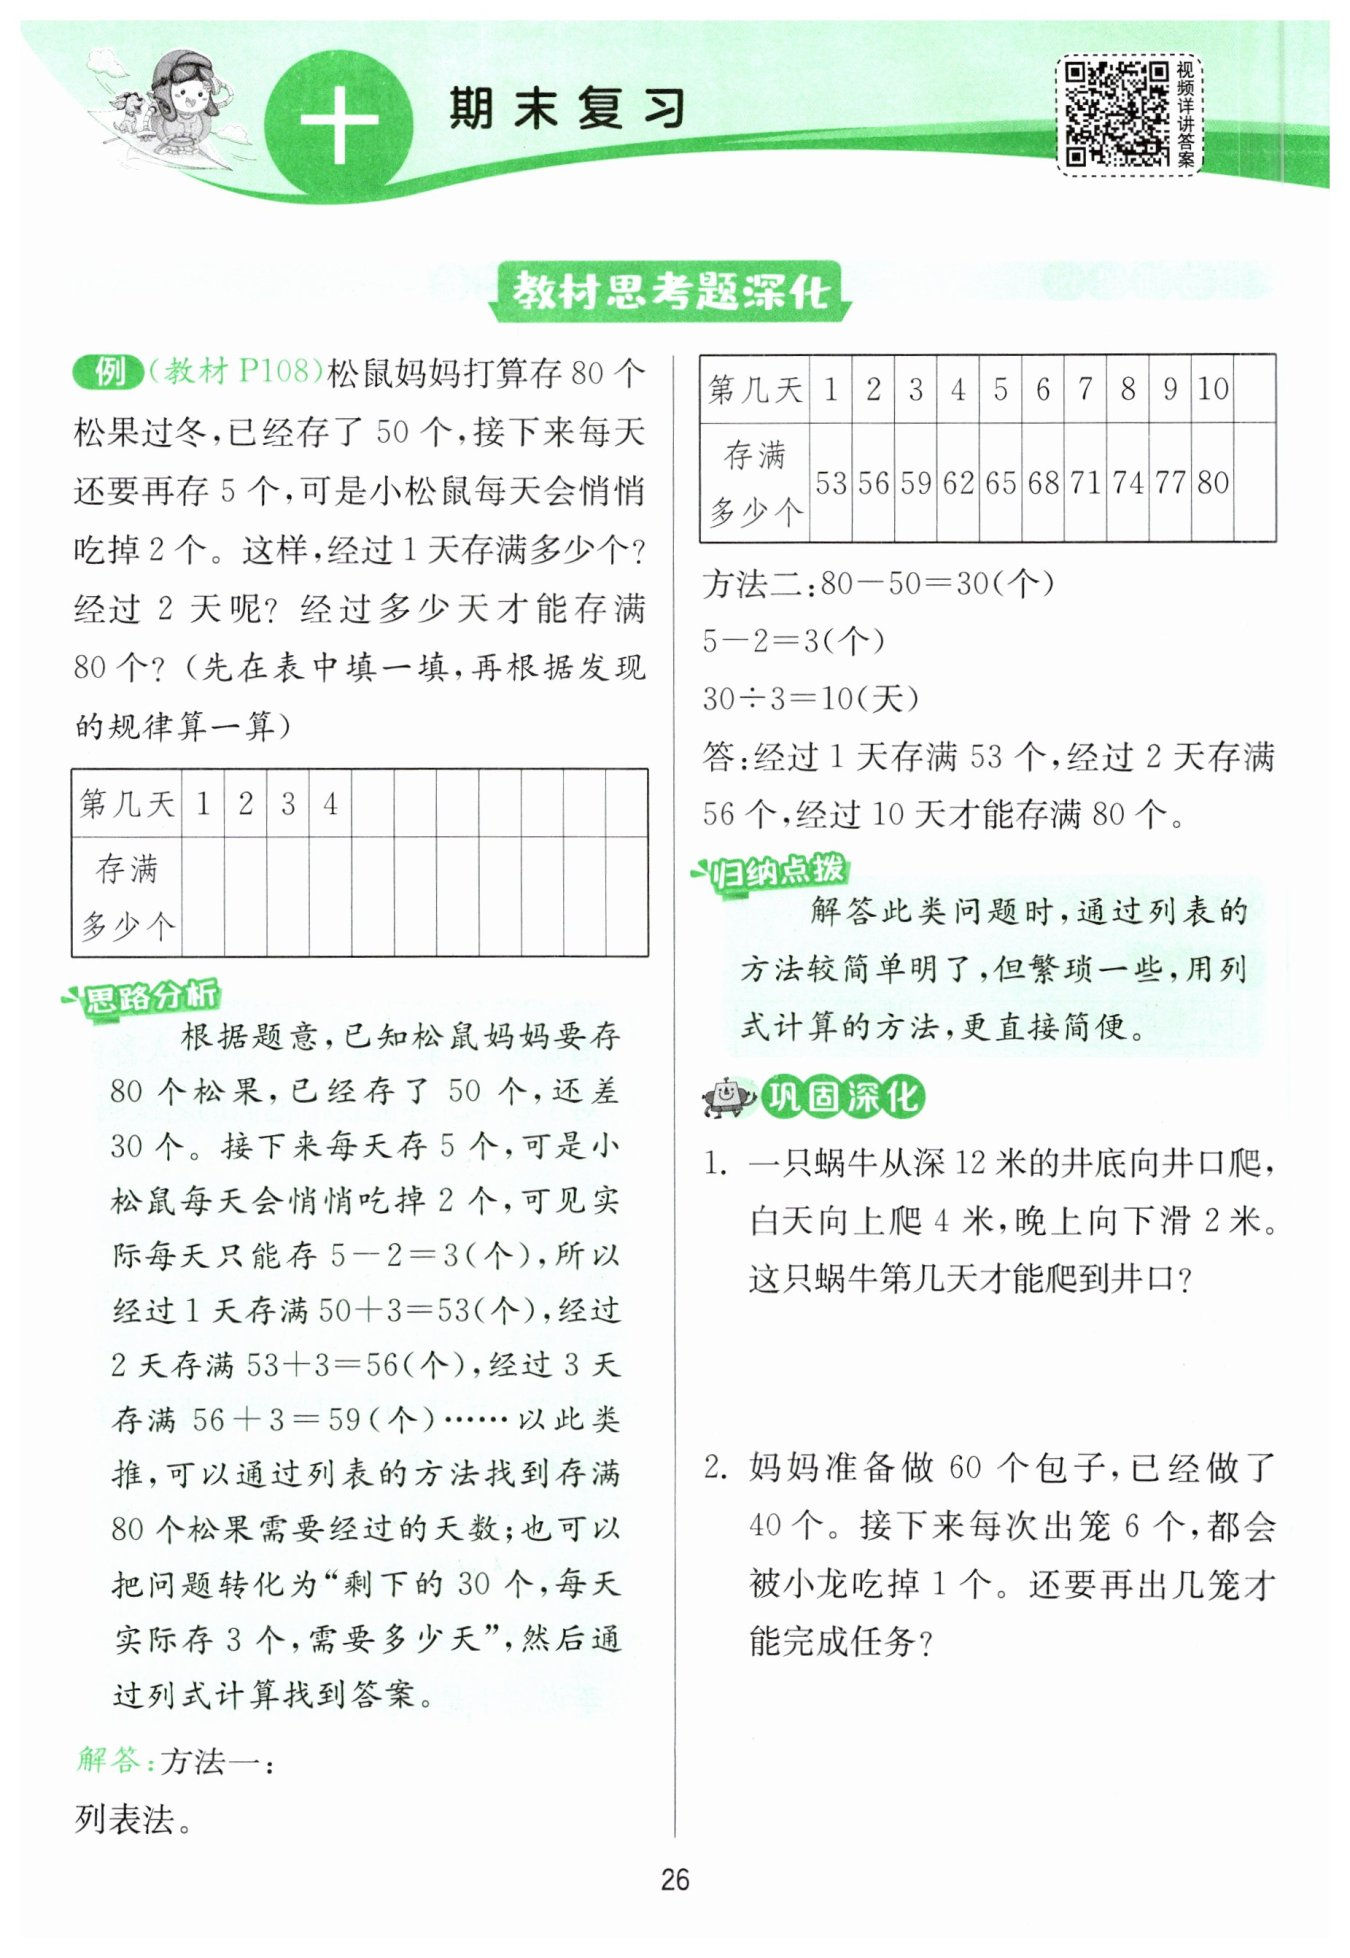 十
期末复习
视频详讲答案
教材思考题深化
例(教材 P108)松鼠妈妈打算存 80 个
松果过冬,已经存了 50 个,接下来每天
还要再存 5 个,可是小松鼠每天会悄悄
吃掉 2 个。这样,经过 1 天存满多少个?
经过 2 天呢? 经过多少天才能存满
80 个?(先在表中填一填,再根据发现
的规律算一算)
第几天 1 2 3 4
存满
多少个
思路分析
根据题意,已知松鼠妈妈要存
80 个松果,已经存了 50 个,还差
30 个。接下来每天存 5 个,可是小
松鼠每天会悄悄吃掉 2 个,可见实
际每天只能存 5-2=3(个),所以
经过 1 天存满 50+3=53(个),经过
2 天存满 53+3=56(个),经过 3 天
存满 56+3=59(个)……以此类
推,可以通过列表的方法找到存满
80 个松果需要经过的天数;也可以
把问题转化为“剩下的 30 个,每天
实际存 3 个,需要多少天”,然后通
过列式计算找到答案。
解答:方法一:
列表法。
第几天 1 2 3 4 5 6 7 8 9 10
存满
多少个 53 56 59 62 65 68 71 74 77 80
方法二:80-50=30(个)
5-2=3(个)
30÷3=10(天)
答:经过 1 天存满 53 个,经过 2 天存满
56 个,经过 10 天才能存满 80 个。
归纳点拨
解答此类问题时,通过列表的
方法较简单明了,但繁琐一些,用列
式计算的方法,更直接简便。
巩固深化
1. 一只蜗牛从深 12 米的井底向井口爬,
白天向上爬 4 米,晚上向下滑 2 米。
这只蜗牛第几天才能爬到井口?
2. 妈妈准备做 60 个包子,已经做了
40 个。接下来每次出笼 6 个,都会
被小龙吃掉 1 个。还要再出几笼才
能完成任务?
26